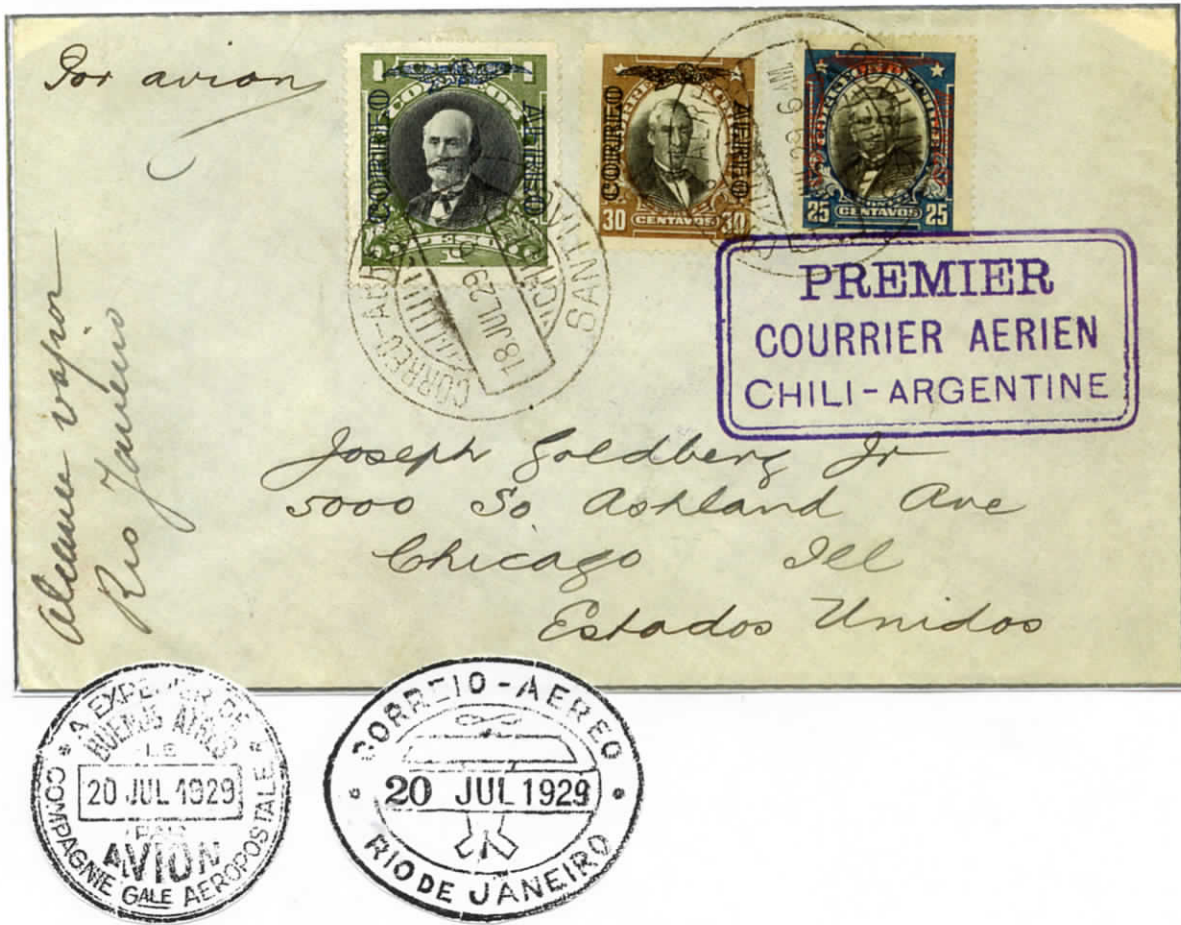 Por avion
1 1
CORREO AEREO
1 PESO 1
CORREO AEREO
30 CENTAVOS 30
25 CENTAVOS 25
CORREO-AEREO
SANTIAGO
18 JUL 29
29 6 AM
PREMIER
COURRIER AERIEN
CHILI-ARGENTINE
vapor
Rio Janeiro
Joseph Goldberg Jr
5000 So Ashland Ave
Chicago Ill
Estados Unidos
A EXPEDIER DE
BUENOS AIRES
LE
20 JUL 1929
PAR
AVION
COMPAGNIE GALE AEROPOSTALE
CORREIO-AEREO
20 JUL 1929
RIO DE JANEIRO